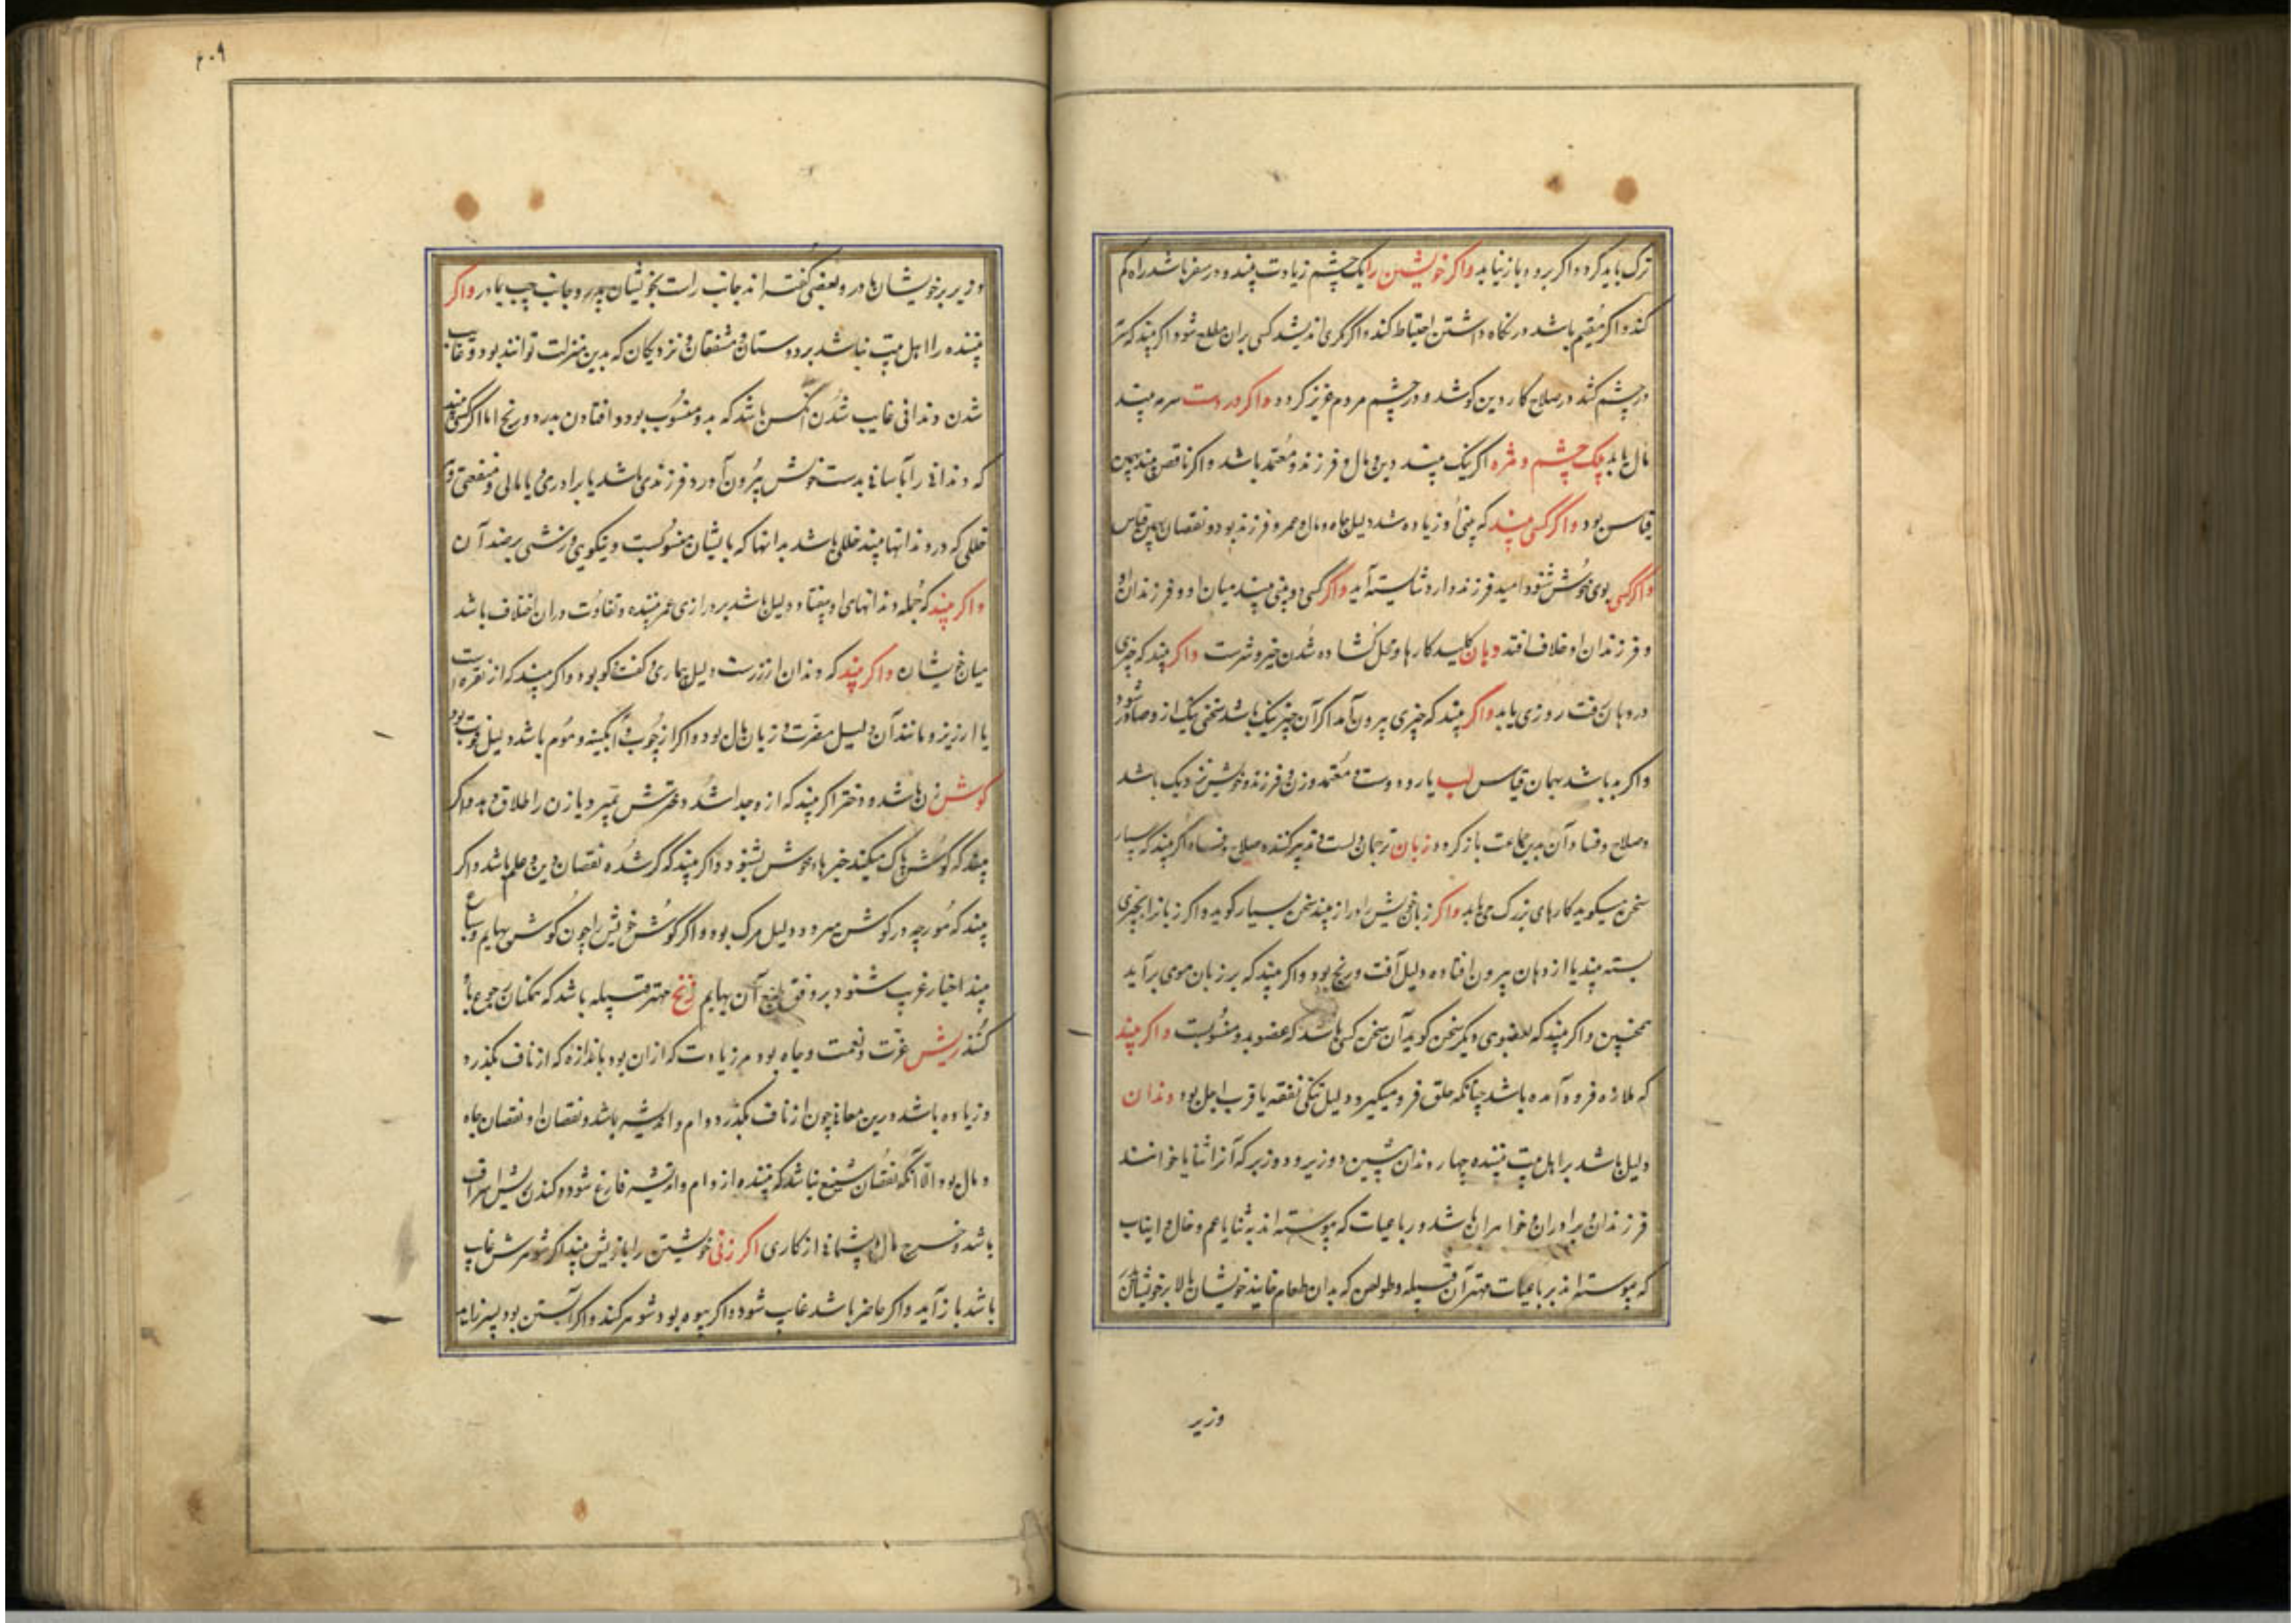 ترک باید کرد و اگر برود باز نیابد واکر خویشتن را یک چشم زیادت بیند و در سفر باشد راه کم
کند و اکر مقیم باشد در نگاه داشتن احتیاط کند و اکر مکری اندیشد کسی بران مطلع شود و اکر بیند که سرمه
در چشم کشد در صلاح کار دین کوشد و در چشم مردم عزیز کردد و اکر در دست سرمه بیند
مال یابد پلک چشم و مژه اکر نیک بیند دین و مال و فرزند و معتمد باشد و اکر ناقص بیند بهمین
قیاس بود واکر کسی بیند که بینی او زیاده شد دلیل جاه و مال و عمر و فرزند بود و نقصان بهمین قیاس
واکر کسی بوی خوش شنود امید فرزند دارد شایسته آید واکر کسی دو بینی بیند میان او و فرزندان او
و فرزندان او خلاف افتد دهان کلید کارها و محل کشاده شدن خیر و شرست واکر بیند که چیزی
در دهان رفت روزی یابد واکر بیند که چیزی بیرون آمد اکر آن چیز نیک باشد سخنی نیک ازو صادر شود
و اکر بد باشد بهمان قیاس لب یار و دوست و معتمد و زن و فرزند و خویش نزدیک باشد
و صلاح و فساد آن بدین جماعت باز کردد زبان ترجمان دلست و تدبیر کننده صلاح و فساد و اکر بیند که بسیار
سخن میکوید کارهای بزرک می یابد واکر زبان خویش را دراز بیند سخن بسیار کوید و اکر زبانرا بچیزی
بسته بیند یا از دهان بیرون افتاده دلیل آفت و رنج بود و اکر بیند که بر زبان موی برآید
همچنین و اکر بیند که بعضوی دیکر سخن کوید آن سخن کسی باشد که عضو بدو منسوبست واکر بیند
که ملازه فرود آمده باشد چنانکه حلق فرو میکیرد دلیل تنکی نفقه یا قرب اجل بود دندان
دلیل باشد بر اهل بیت بیننده چهار دندان پیشین دو زیر و دو زبر که آنرا ثنایا خوانند
فرزندان و برادران و خواهران باشد و رباعیات که پیوسته اند به ثنایا عم و خال و انیاب
که پیوسته اند برباعیات مهتر آن قبیله و طواحن که بدان طعام خایند خویشان بالا بر خویشان پدر
وزیر
۲۰۹
و زیر بر خویشان مادر و بعضی کفته اند جانب راست بخویشان پدر و جانب چپ بمادر واکر
بیننده را اهل بیت نباشد بر دوستان و مشفقان و نزدیکان که بدین منزلت توانند بود و غایب
شدن دندانی غایب شدن آنکس باشد که بدو منسوب بود و افتادن بدرد و رنج اما اکر کسی بیند
که دندانی را بآسانی بدست خویش بیرون آورد فرزندی باشد یا برادری یا مالی و منفعتی و
خللی که در دندانها بیند خللی باشد بدانها که بایشان منسوبست و نیکویی و زشتی بر ضد آن
واکر بیند که جمله دندانهای او بیفتاد دلیل باشد بر درازی عمر بیننده و تفاوت دران اختلاف باشد
میان خویشان واکر بیند که دندان از زرست دلیل بیماری و کفت و کو بود و اکر بیند که از نقره است
یا ارزیز و مانند آن دلیل مضرت و زیان مال بود و اکر از چوب و آبکینه و موم باشد دلیل فوت بود
کوش زن باشد و دختر اکر بیند که ازو جدا شد دخترش بمیرد یا زن را طلاق دهد و اکر
بیند که کوش پاک میکند خبرهاء خوش بشنود و اکر بیند که کر شده نقصان دین و علم باشد و اکر
بیند که مورچه در کوش میرود دلیل مرک بود و اکر کوش خویش را چون کوش بهایم و سباع
بیند اخبار غریب شنود بر وفق طبع آن بهایم زنخ مهتر قبیله باشد که همکنان رجوع باو
کنند ریش عزت و نعمت و جاه بود هر زیادت که ازان بود باندازه که از ناف بکذرد
و زیاده باشد درین معانی چون از ناف بکذرد وام و اندیشه باشد و نقصان او نقصان جاه
و مال بود الا آنکه نقصان شنیع نباشد که بیننده از وام و اندیشه فارغ شود و کندن ریش اسراف
باشد و خرج مال و پشیمانی از کاری اکر زنی خویشتن را با ریش بیند اکر شوهرش غایب
باشد باز آید و اکر حاضر باشد غایب شود و اکر بیوه بود شوهر کند و اکر آبستن بود پسر زاید